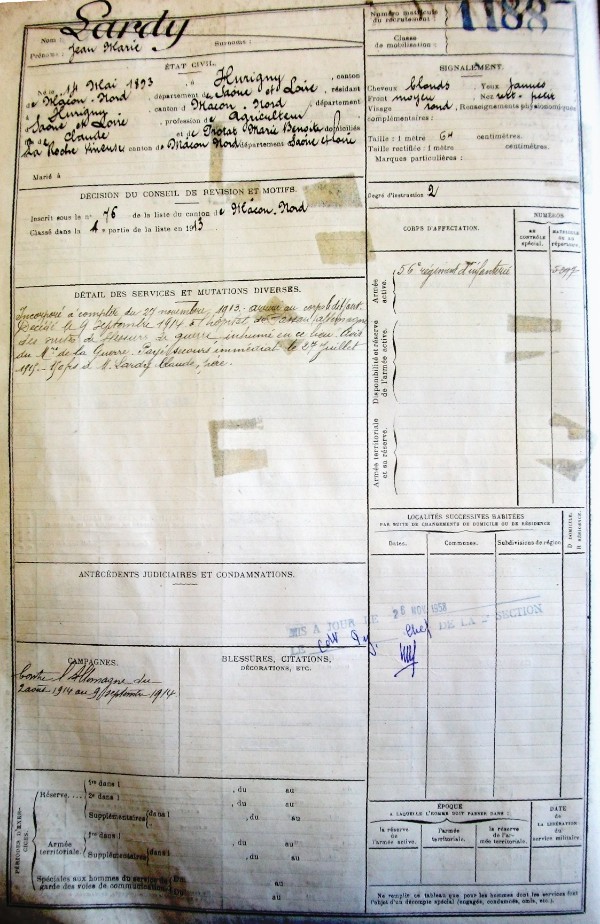 Nom : Lardy
Prénoms : Jean Marie Surnoms :
Numéro matricule
du recrutement : 1188
Classe
de mobilisation :
ÉTAT CIVIL.
Né le 14 Mai 1893, à Hurigny, canton
de Mâcon-Nord, département de Saône et Loire, résidant
à Hurigny, canton de Mâcon-Nord, département
Saône et Loire, profession de Agriculteur
de Claude et de Trotat Marie Benoite domiciliés
La Roche Vineuse canton de Mâcon Nord département Saône et Loire
Marié à
SIGNALEMENT.
Cheveux blonds Yeux jaunes
Front moyen Nez rect. petit
Visage rond, Renseignements physionomiques
complémentaires :
Taille : 1 mètre 64 centimètres.
Taille rectifiée : 1 mètre centimètres.
Marques particulières :
DECISION DU CONSEIL DE REVISION ET MOTIFS.
Inscrit sous le n° 76 de la liste du canton de Mâcon-Nord
Classé dans la 1e partie de la liste en 1913
Degré d'instruction 2
CORPS D'AFFECTATION.
NUMÉROS
AU CONTRÔLE spécial.
MATRICULE ou au répertoire.
Armée active.
56e régiment d'infanterie 5097
Disponibilité et réserve de l'armée active.
Armée territoriale et sa réserve.
DÉTAIL DES SERVICES ET MUTATIONS DIVERSES.
Incorporé à compter du 27 novembre 1913.- arrivé au corps le dit jour.
Décédé le 9 septembre 1914 à l'hôpital de (allemagne)
des suites de blessures de guerre, inhumé en ce lieu. Avis
du Mre de la Guerre. Payé secours immédiat le 27 Juillet
1915.- à M. Lardy Claude, père.
LOCALITÉS SUCCESSIVES HABITÉES
PAR SUITE DE CHANGEMENTS DE DOMICILE OU DE RÉSIDENCE
Dates.
Communes.
Subdivisions de région
D. DOMICILE.
R. RÉSIDENCE.
ANTÉCÉDENTS JUDICIAIRES ET CONDAMNATIONS.
MIS A JOUR LE 26 NOV. 1958
LE Chef DE LA 2e SECTION
CAMPAGNES.
Contre l'Allemagne du
2 août 1914 au 9 septembre 1914
BLESSURES, CITATIONS,
DÉCORATIONS, ETC.
PÉRIODES D'EXERCICES.
Réserve....
1re dans l , du au
2e dans l , du au
Supplémentaires (dans l , du au
Armée territoriale.
1re dans l , du au
Supplémentaires (dans l , du au
Spéciales aux hommes du service de garde des voies de communication
Du au
Du au
ÉPOQUE
A LAQUELLE L'HOMME DOIT PASSER DANS :
la réserve de l'armée active.
l'armée territoriale.
la réserve de l'armée territoriale.
DATE
DE LA LIBÉRATION
du
service militaire.
Ne remplir ce tableau que pour les hommes dont les services font
l'objet d'un décompte spécial (engagés, condamnés, omis, etc.).